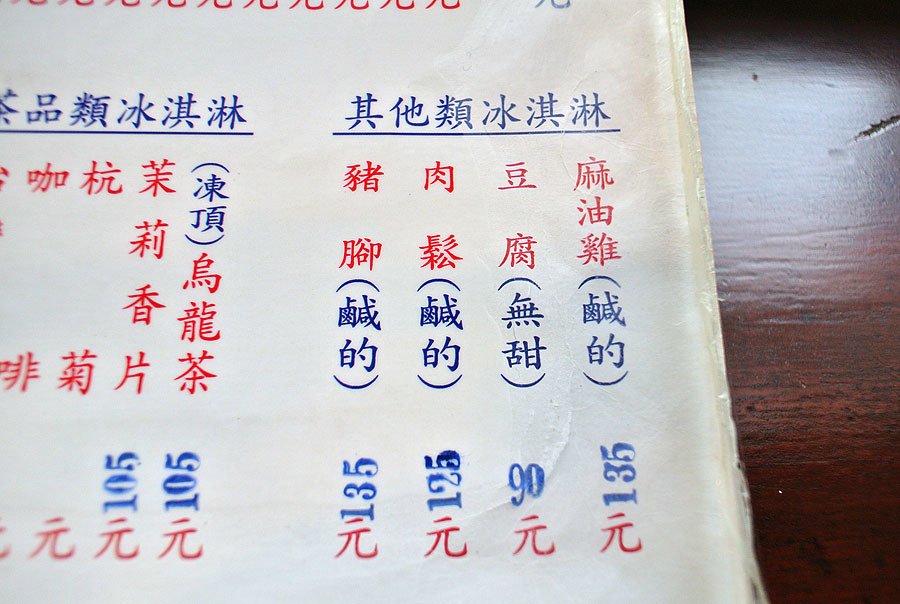 其他類冰淇淋
麻油雞(鹹的)
135元
豆腐(無甜)
90元
肉鬆(鹹的)
125元
豬腳(鹹的)
135元
茶品類冰淇淋
(凍頂)烏龍茶
105元
茉莉香片
105元
杭菊
元
咖啡